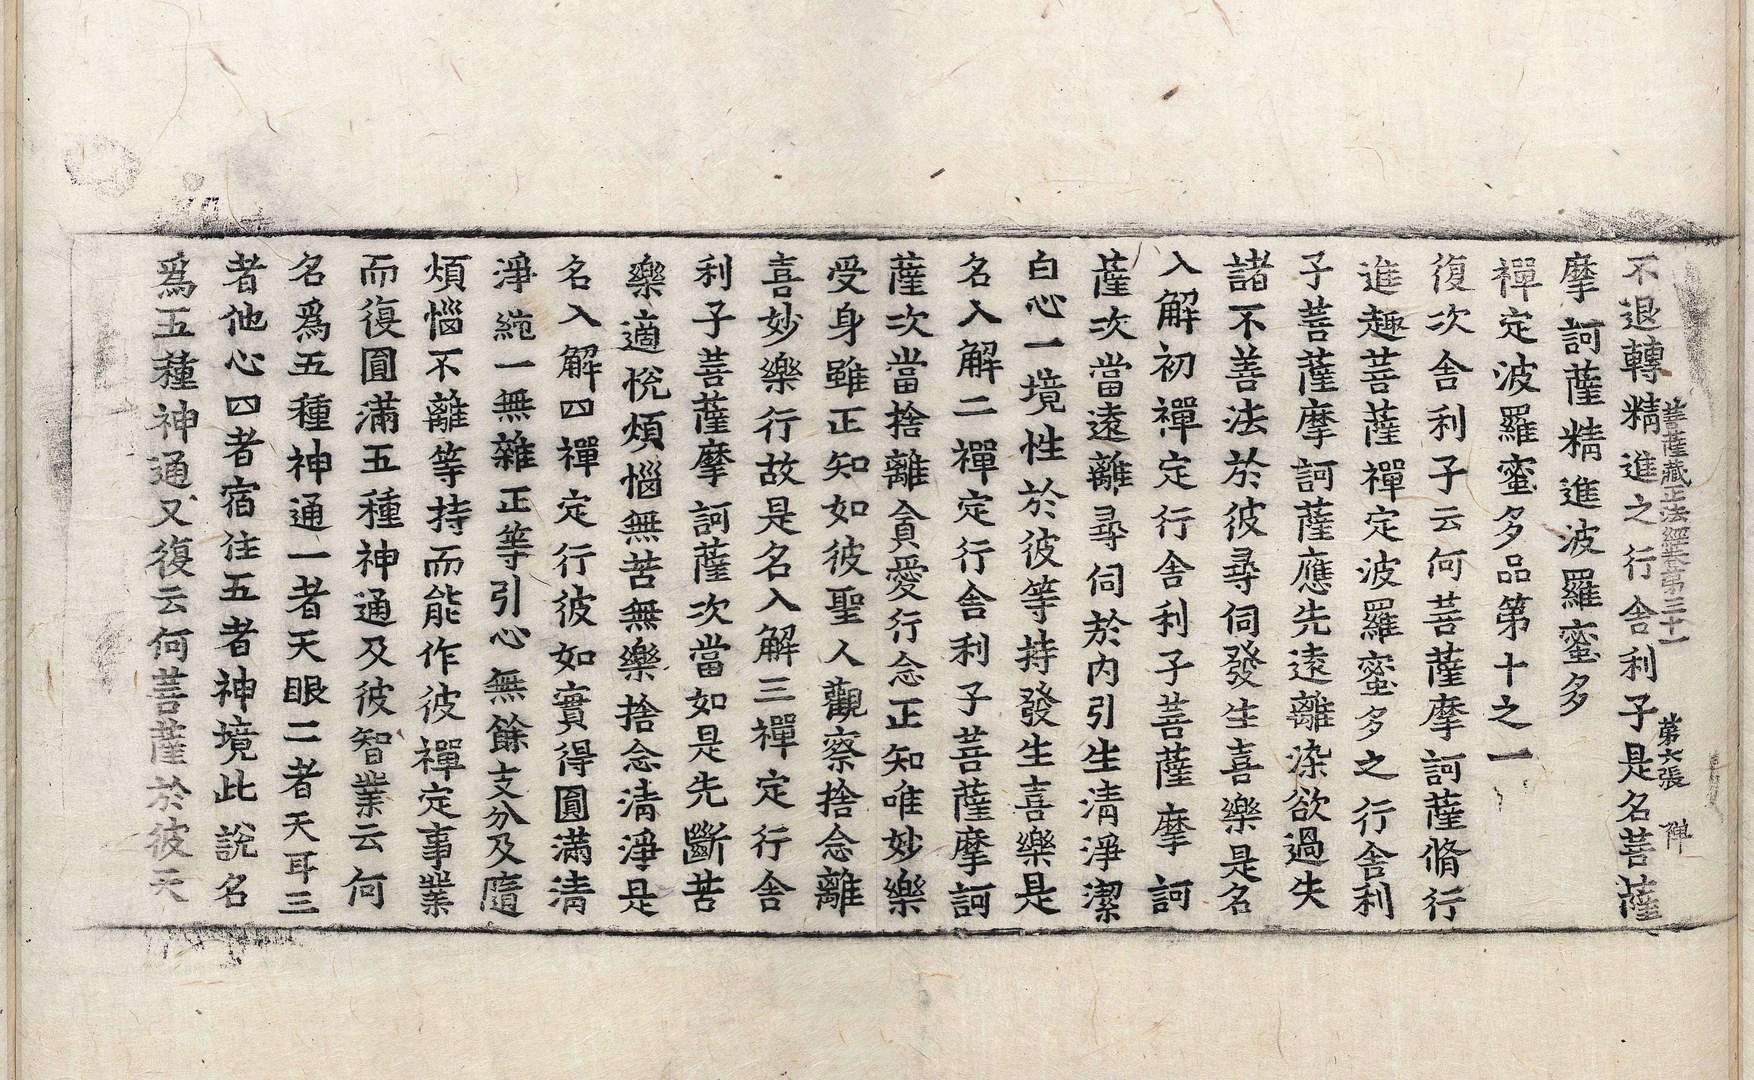 菩薩藏正法經卷第三十一 第六張
不退轉精進之行舍利子是名菩薩
摩訶薩精進波羅蜜多
禪定波羅蜜多品第十之一
復次舍利子云何菩薩摩訶薩脩行
進趣菩薩禪定波羅蜜多之行舍利
子菩薩摩訶薩應先遠離染欲過失
諸不善法於彼尋伺發生喜樂是名
入解初禪定行舍利子菩薩摩訶
薩次當遠離尋伺於內引生清淨潔
白心一境性於彼等持發生喜樂是
名入解二禪定行舍利子菩薩摩訶
薩次當捨離貪愛行念正知唯妙樂
受身雖正知如彼聖人觀察捨念離
喜妙樂行故是名入解三禪定行舍
利子菩薩摩訶薩次當如是先斷苦
樂適悅煩惱無苦無樂捨念清淨是
名入解四禪定行彼如實得圓滿清
淨純一無雜正等引心無餘支分及隨
煩惱不離等持而能作彼禪定事業
而復圓滿五種神通及彼智業云何
名爲五種神通一者天眼二者天耳三
者他心四者宿住五者神境此說名
爲五種神通又復云何菩薩於彼天